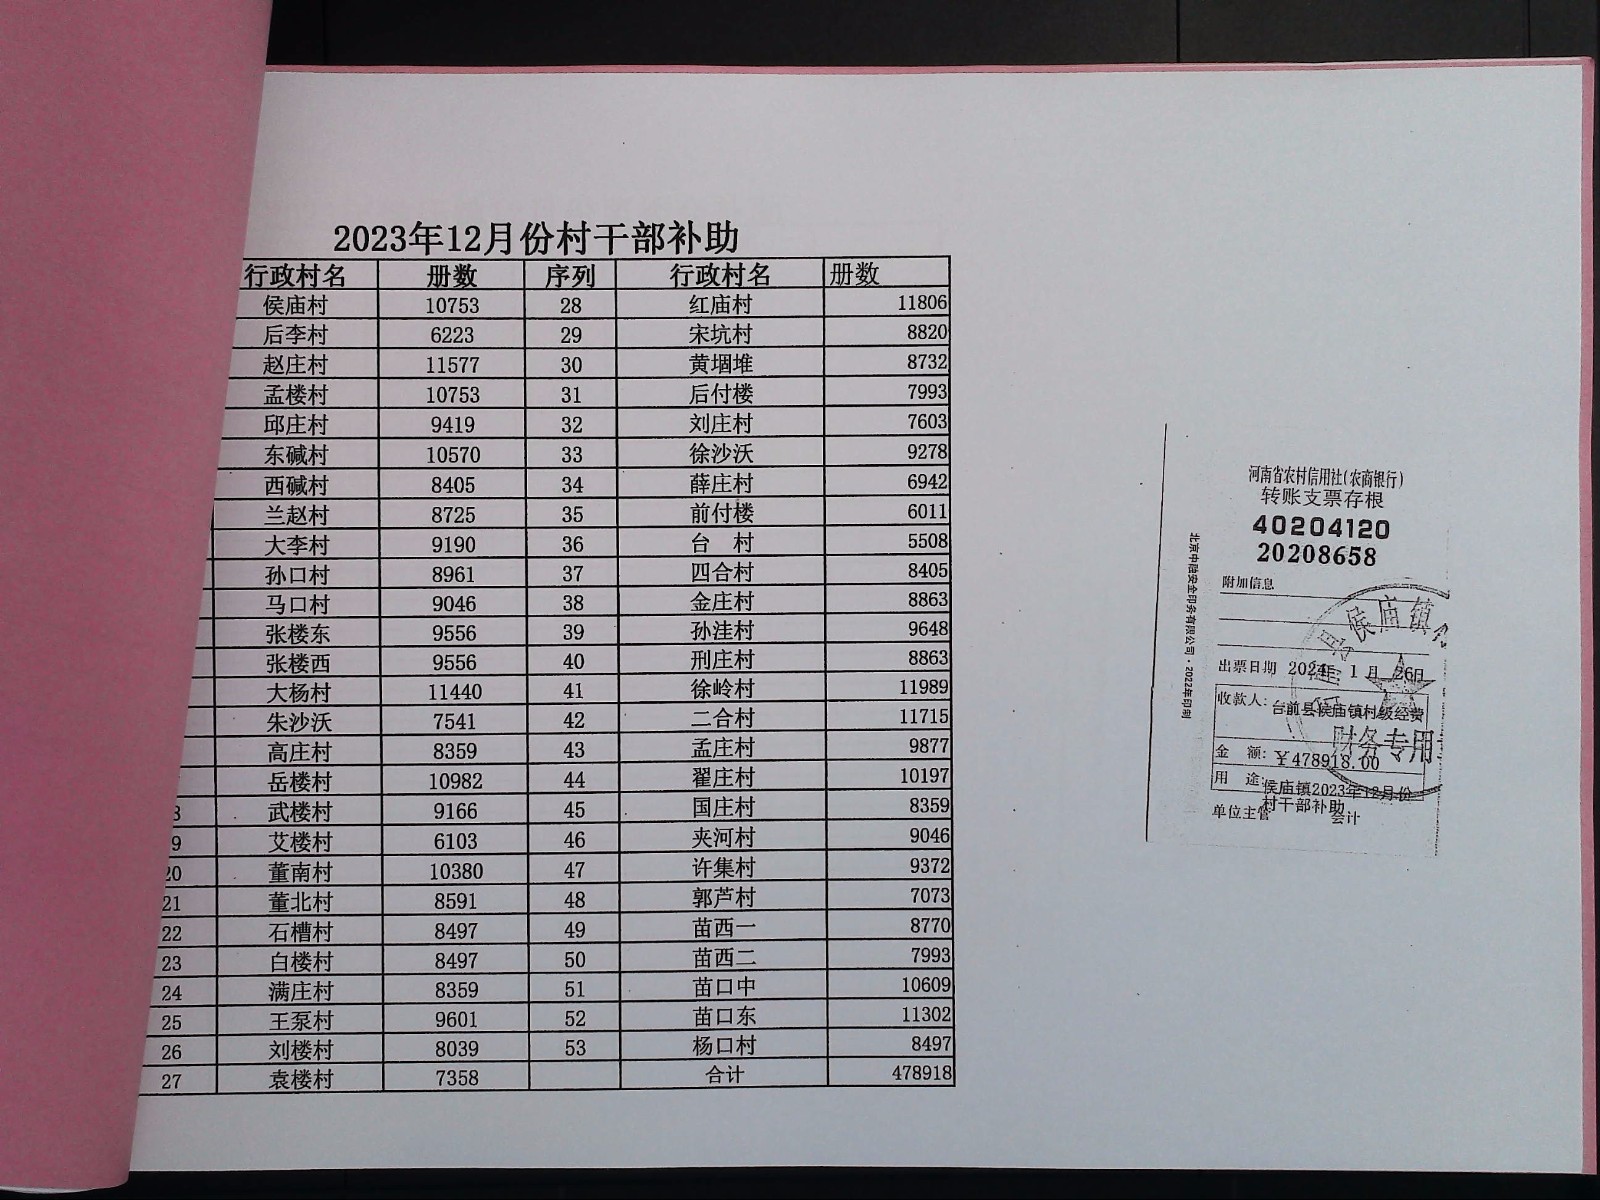 2023年12月份村干部补助
行政村名 册数 序列 行政村名 册数
侯庙村 10753 28 红庙村 11806
后李村 6223 29 宋坑村 8820
赵庄村 11577 30 黄堌堆 8732
孟楼村 10753 31 后付楼 7993
邱庄村 9419 32 刘庄村 7603
东碱村 10570 33 徐沙沃 9278
西碱村 8405 34 薛庄村 6942
兰赵村 8725 35 前付楼 6011
大李村 9190 36 台 村 5508
孙口村 8961 37 四合村 8405
马口村 9046 38 金庄村 8863
张楼东 9556 39 孙洼村 9648
张楼西 9556 40 刑庄村 8863
大杨村 11440 41 徐岭村 11989
朱沙沃 7541 42 二合村 11715
高庄村 8359 43 孟庄村 9877
岳楼村 10982 44 翟庄村 10197
武楼村 9166 45 国庄村 8359
9 艾楼村 6103 46 夹河村 9046
20 董南村 10380 47 许集村 9372
21 董北村 8591 48 郭芦村 7073
22 石槽村 8497 49 苗西一 8770
23 白楼村 8497 50 苗西二 7993
24 满庄村 8359 51 苗口中 10609
25 王泵村 9601 52 苗口东 11302
26 刘楼村 8039 53 杨口村 8497
27 袁楼村 7358 合计 478918
河南省农村信用社(农商银行)
转账支票存根
40204120
20208658
附加信息
出票日期 2024年 1月 26日
收款人: 台前县侯庙镇村级经费
金 额: ¥478918.00
用 途: 侯庙镇2023年12月份
村干部补助
单位主管 会计
北京中融安全印务有限公司·2022年印制
县侯庙镇
财务专用